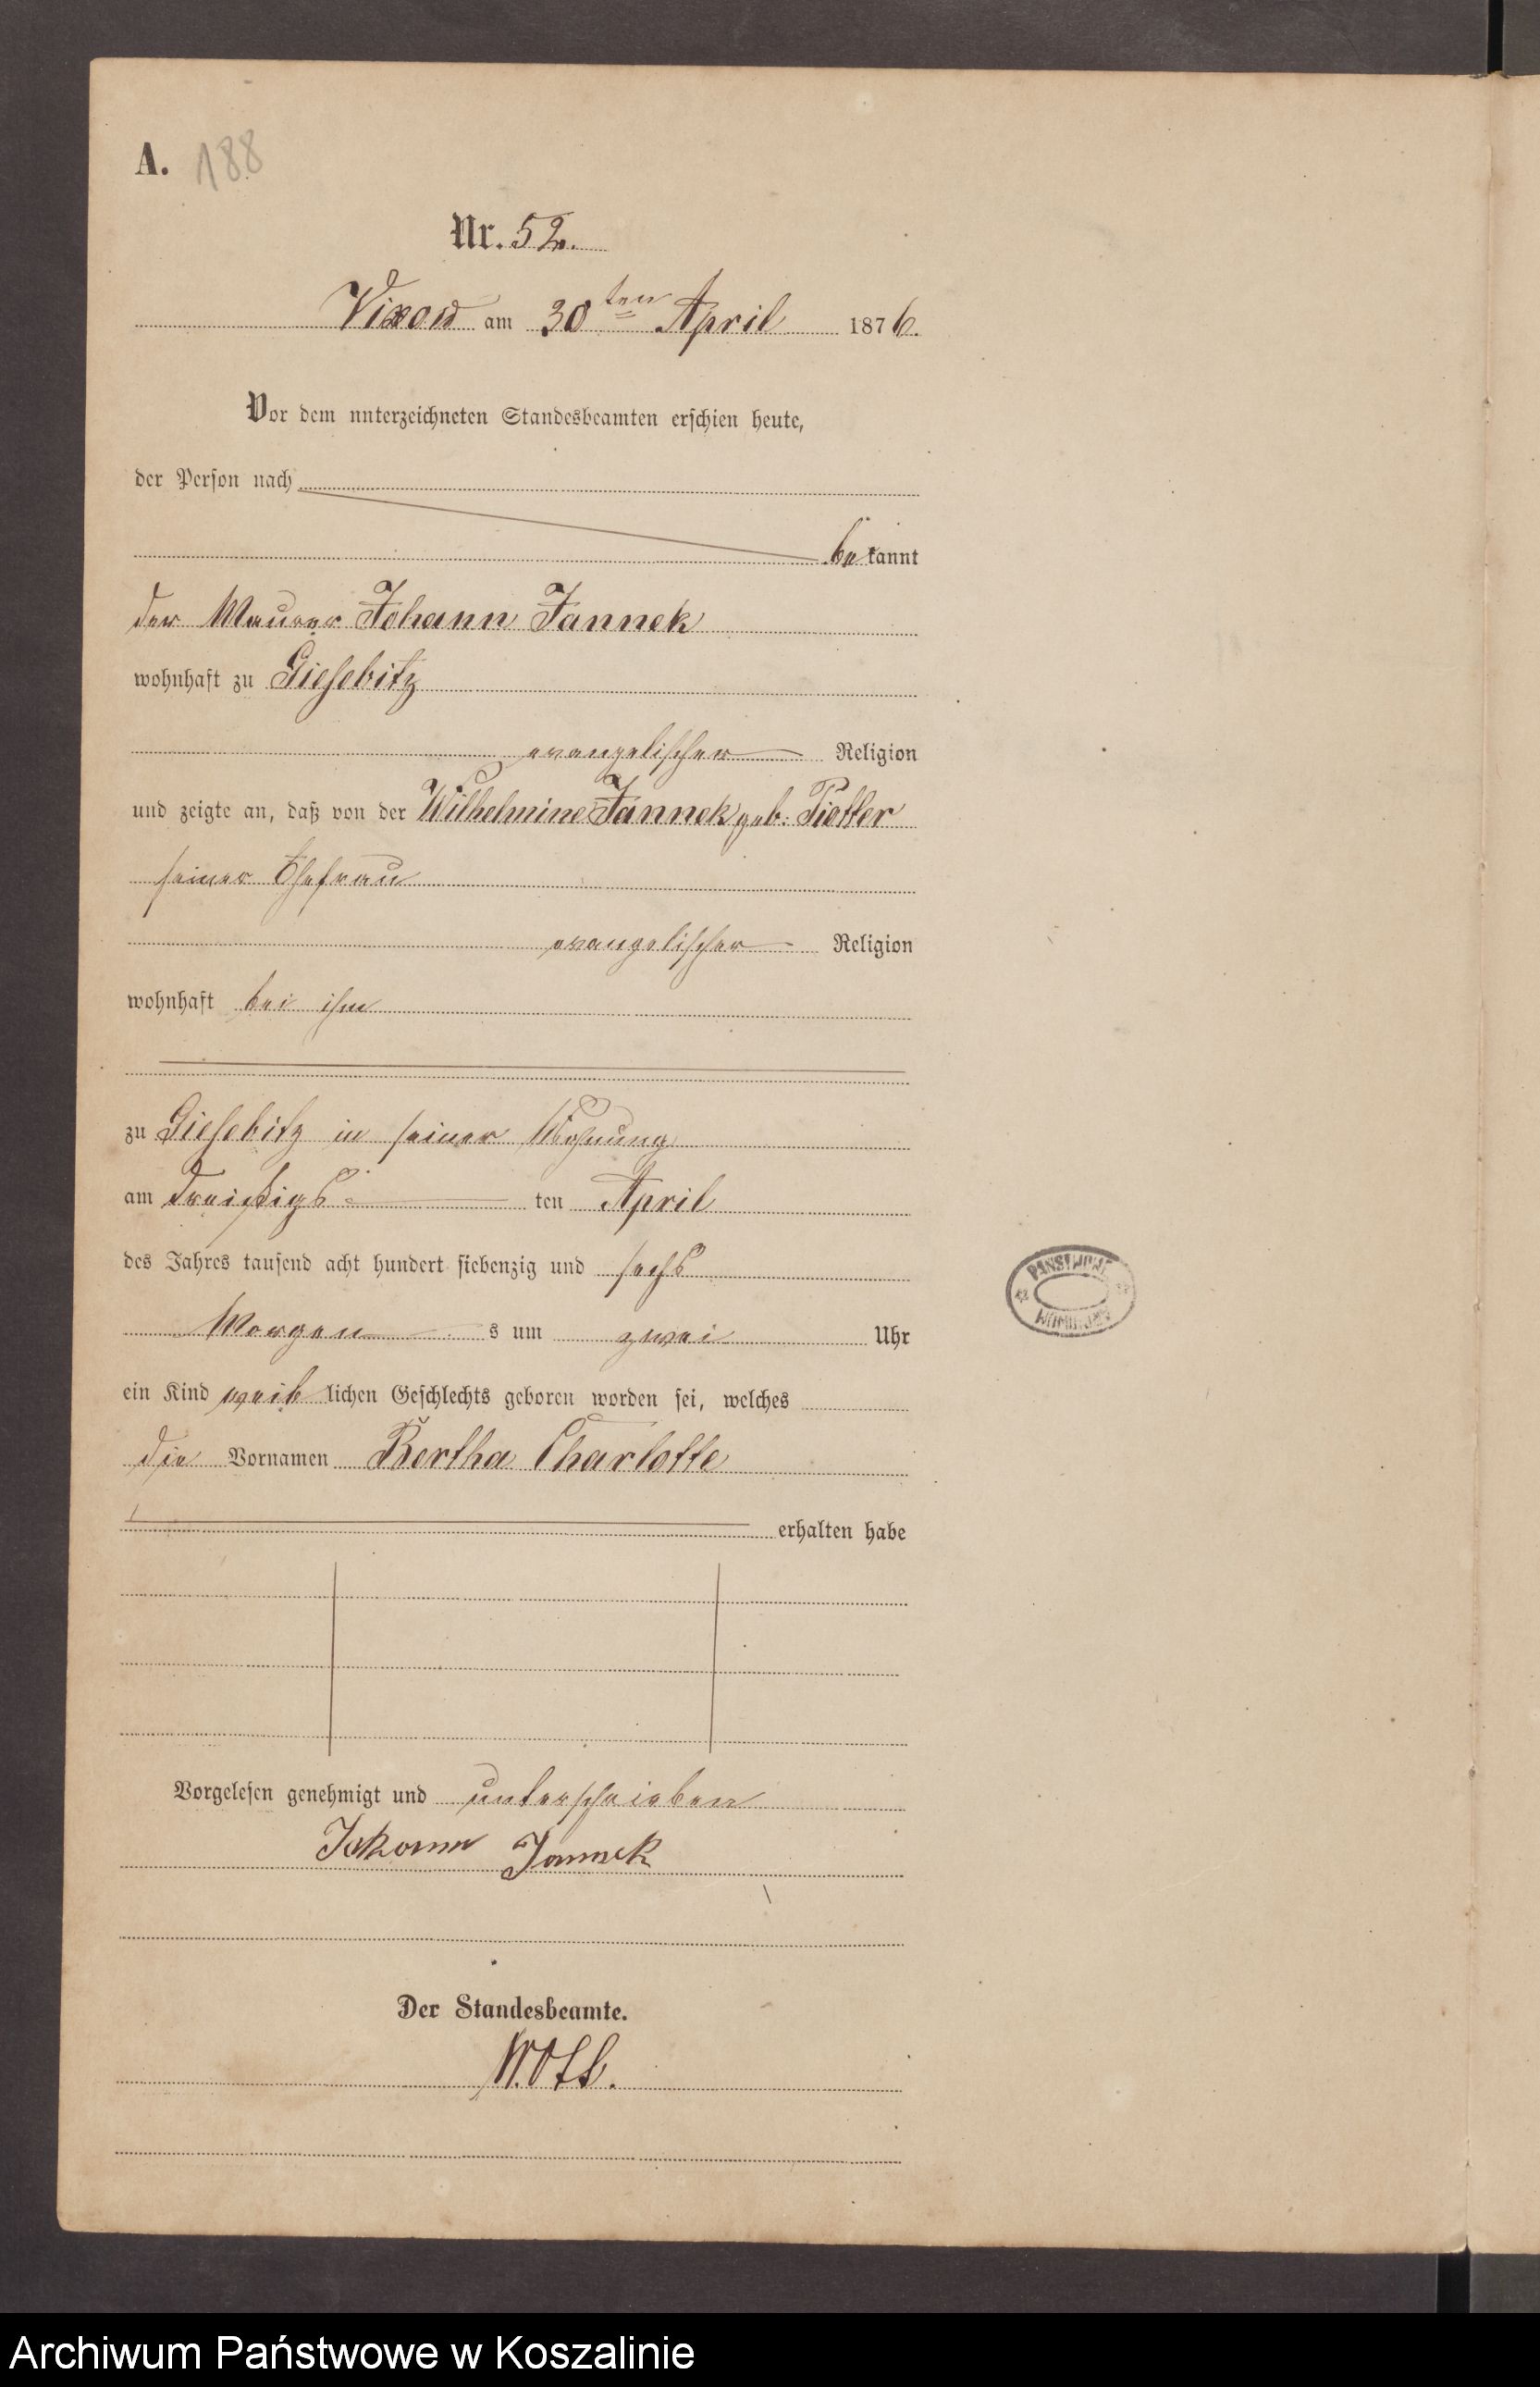 A. 188
Nr. 52.
Vixow am 30ten April 1876.
Vor dem unterzeichneten Standesbeamten erschien heute,
der Person nach
bekannt
der Maurer Johann Jannek
wohnhaft zu Giesebitz
evangelischer Religion
und zeigte an, daß von der Wilhelmine Jannek geb.
seiner Ehefrau
evangelischer Religion
wohnhaft bei ihm
zu Giesebitz in seiner Wohnung
am dreißigs ten April
des Jahres tausend acht hundert siebenzig und sechs
Morgen s um zwei Uhr
ein Kind weiblichen Geschlechts geboren worden sei, welches
die Vornamen Bertha Charlotte
erhalten habe
Vorgelesen genehmigt und unterschrieben
Jannek
Der Standesbeamte.
Archiwum Państwowe w Koszalinie